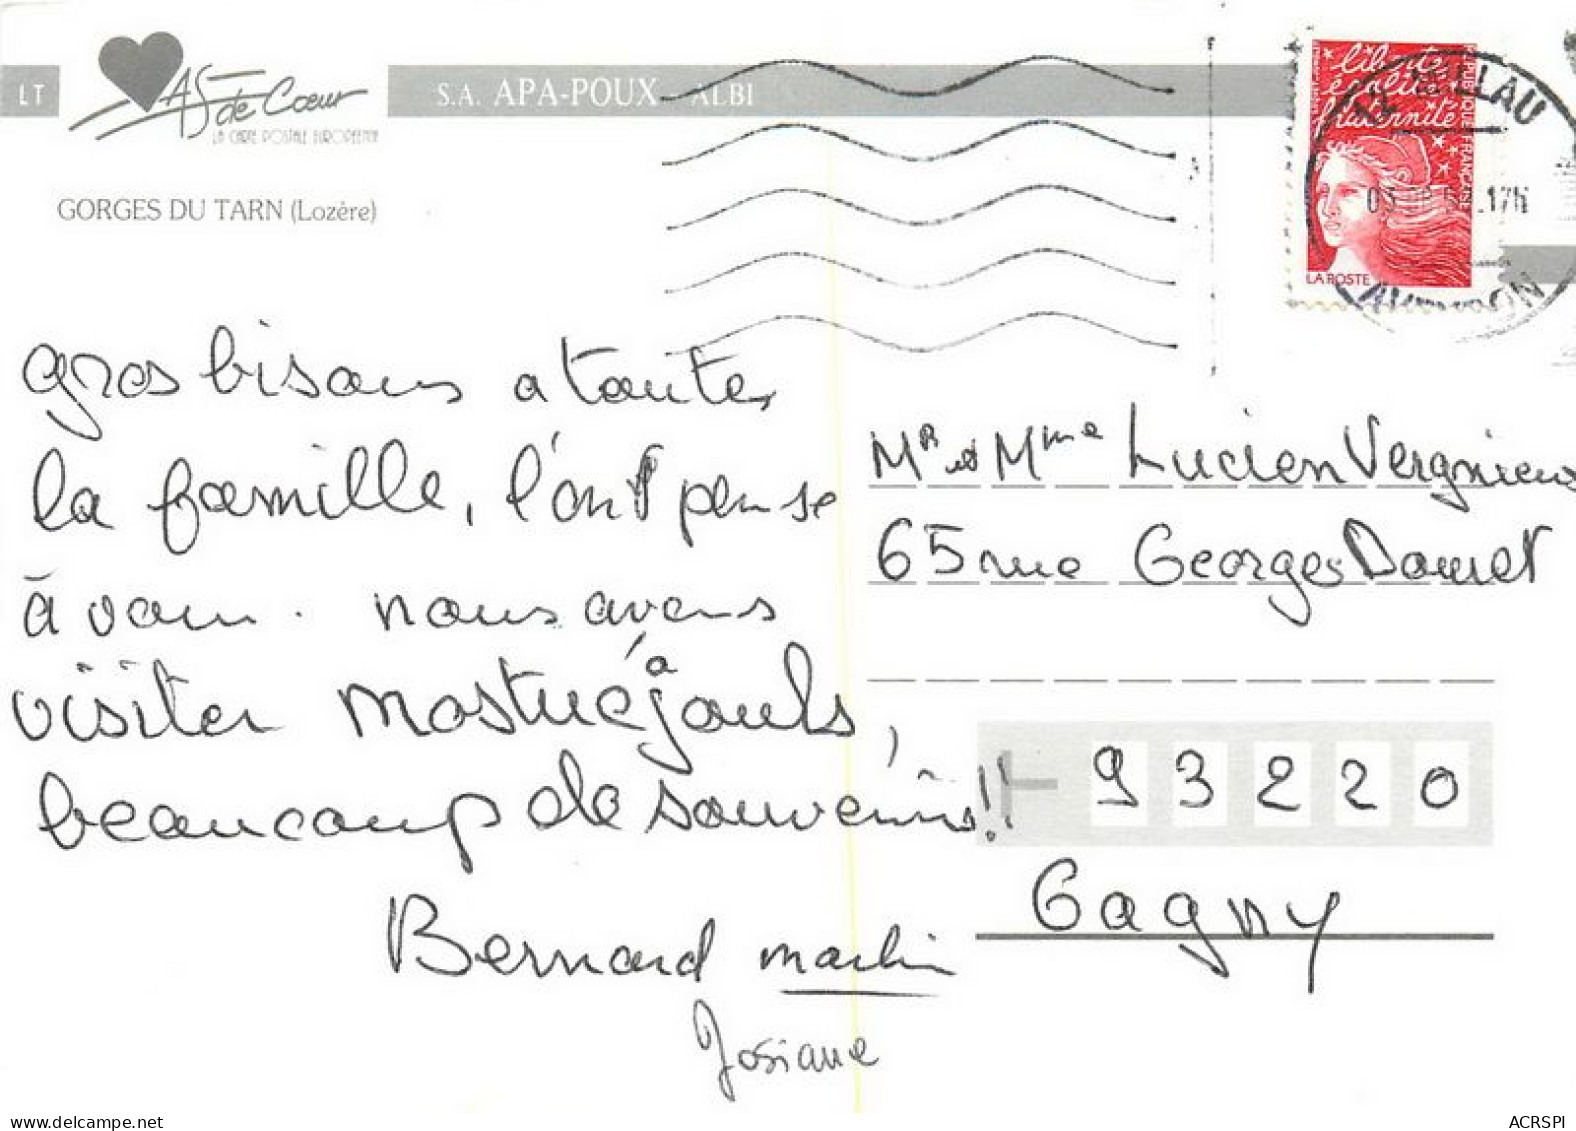 LT
As de Coeur
LA CARTE POSTALE EUROPEENNE
S.A. APA-POUX ALBI
GORGES DU TARN (Lozère)
liberté
égalité
fraternité
REPUBLIQUE FRANCAISE
LA POSTE
MILLAU
17h
AVEYRON
gros bisous a toute
la famille, l'ont pense
à vous. nous avons
visiter Mostuéjouls,
beaucoup de souvenirs!!
Bernard martin
Josiane
Mr et Mme Lucien Vergnieux
65 rue Georges Dauret
93220
Gagny
ACRSPI